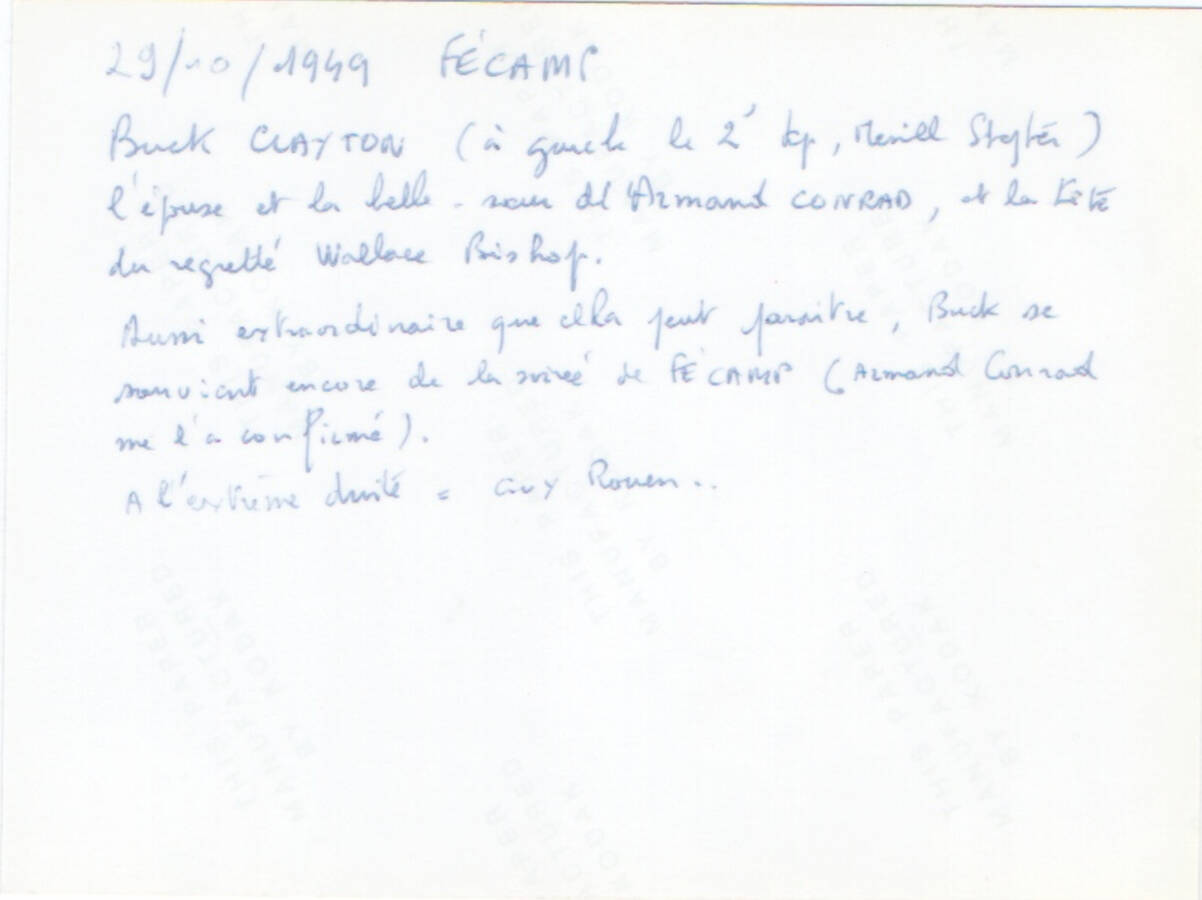 29/10/1949 FÉCAMP
Buck CLAYTON (à gauche le 2è tp, Merill Stepter)
l'épouse et la belle-soeur d'Armand CONRAD, et la tête
du regretté Wallace Bishop.
Aussi extraordinaire que cela peut paraitre, Buck se
souvient encore de la soirée de FÉCAMP (Armand Conrad
me l'a confirmé).
A l'extrême droite = Guy Rouen..
THIS PAPER
MANUFACTURED
BY KODAK
THIS PAPER
MANUFACTURED
BY KODAK
THIS PAPER
MANUFACTURED
BY KODAK